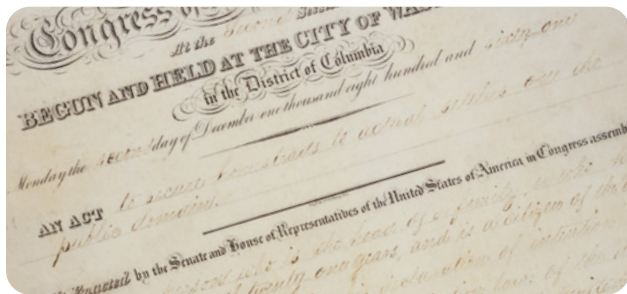 Congress of
At the Second Sess
BEGUN AND HELD AT THE CITY OF WAS
in the District of Columbia
Monday the second day of December one thousand eight hundred and sixty-one
AN ACT to secure homesteads to actual settlers on the
public domain.
enacted by the Senate and House of Representatives of the United States of America in Congress assemb
person who is the head of a family,
twenty one years, and is a citizen of the
declaration of intention
laws of the